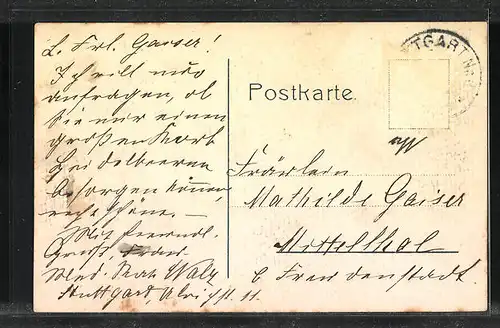 L. Frl. Gaiser!
Ich will nur
anfragen, ob
Sie mir einen
großen Korb
Heidelbeeren
besorgen können,
recht schöne. —
Mit freundl.
Gruß, Frau
Med. Rat Walz
Stuttgart, Ulrichstr. 11.
TGART
Postkarte.
Fräulein
Mathilde Gaiser
Mittelthal
b Freudenstadt.